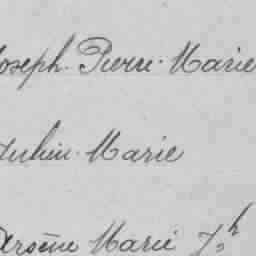 Joseph Pierre Marie
Marie
Arsène Marie Jh